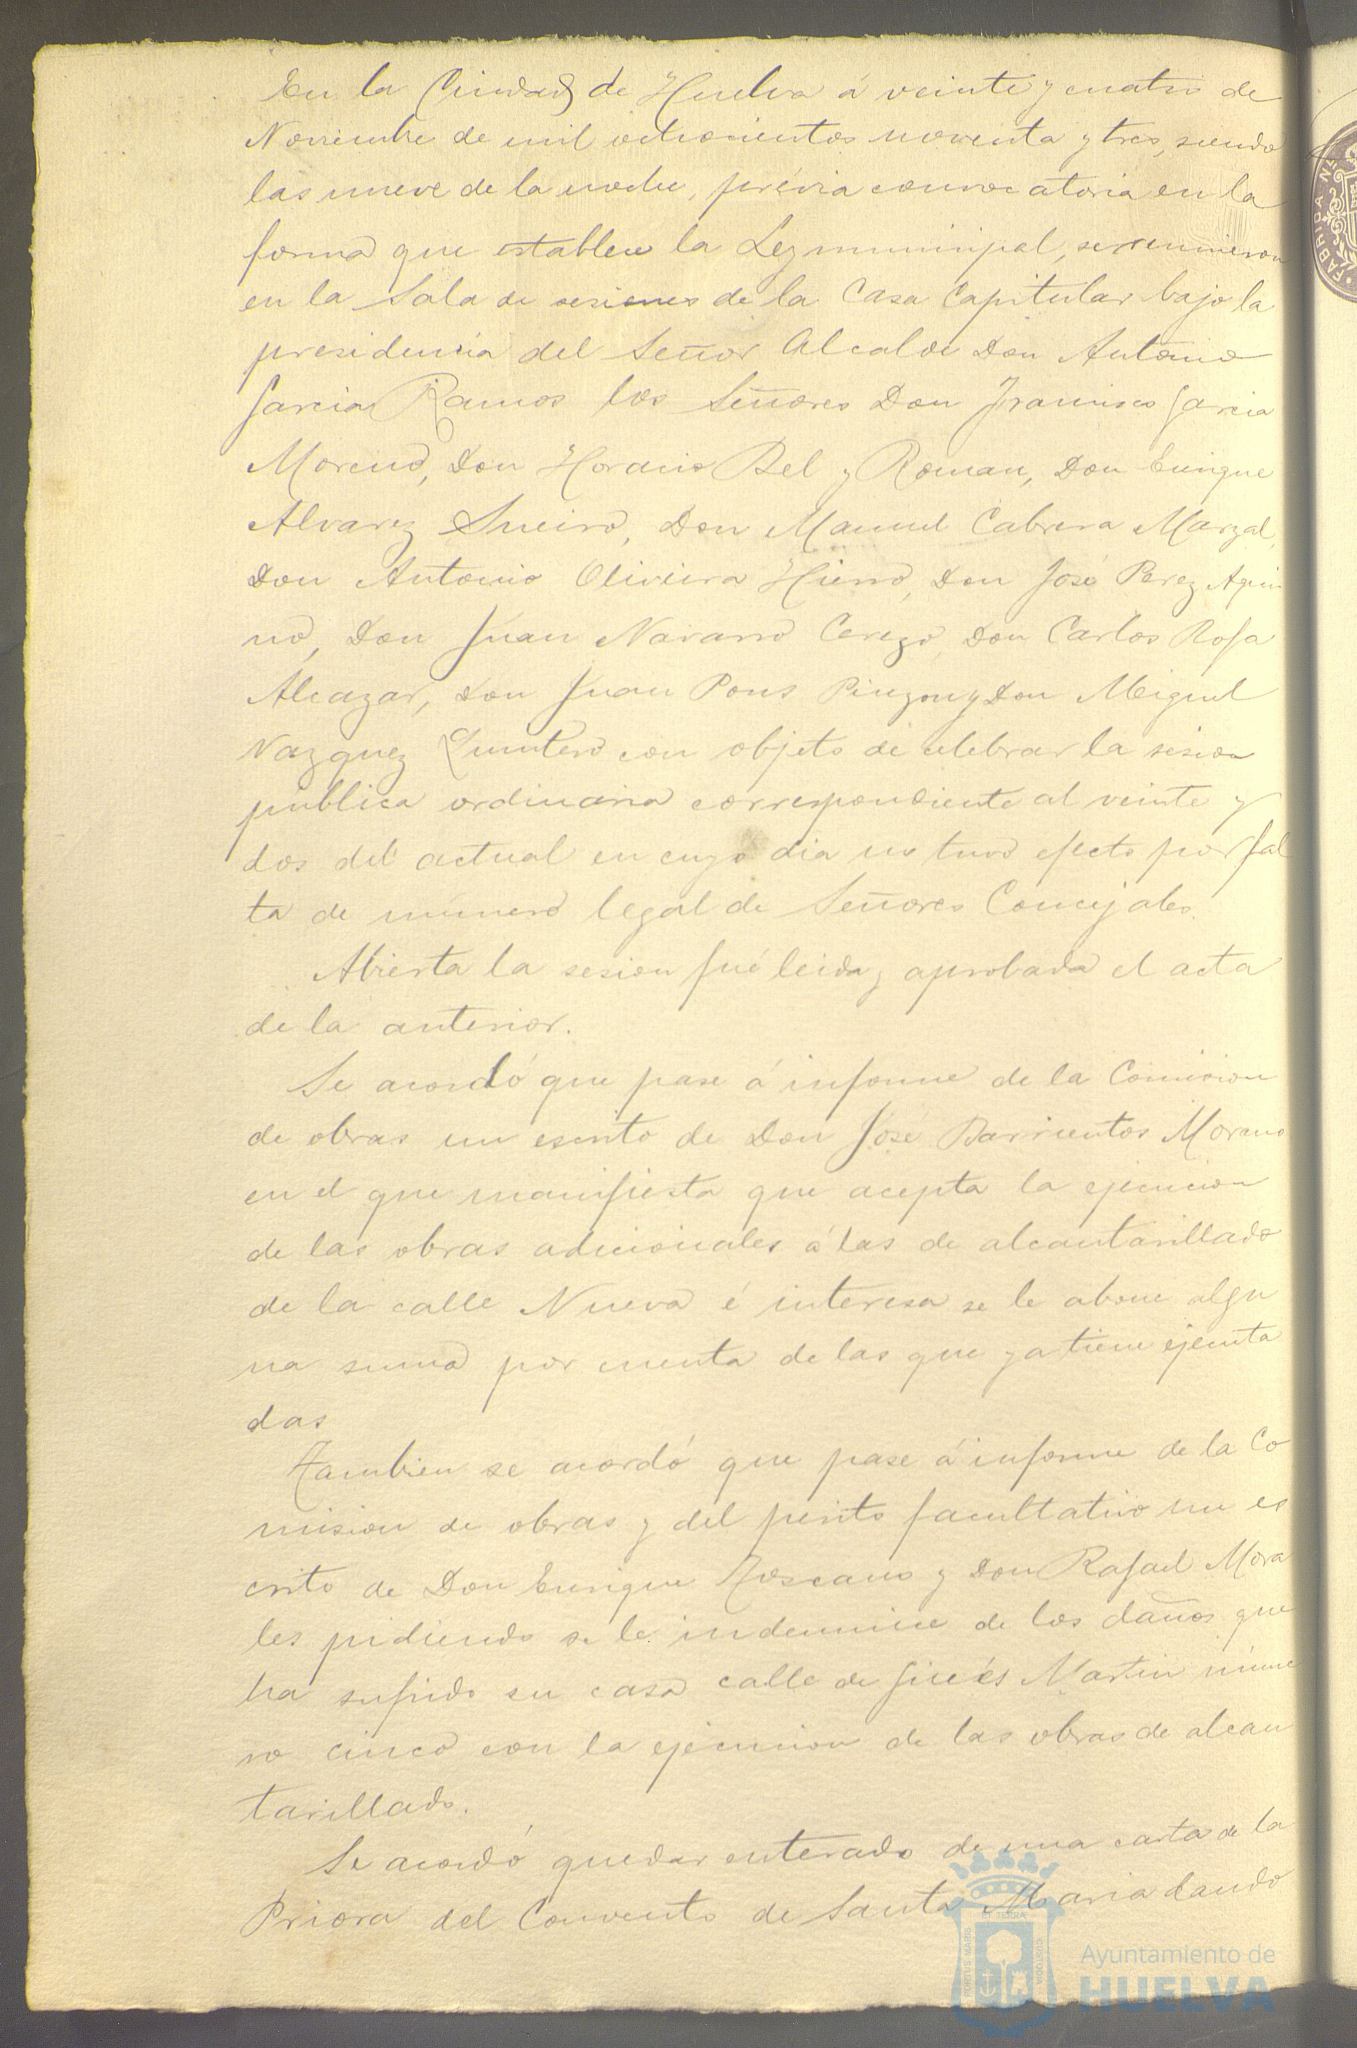 En la Ciudad de Huelva á veinte y cuatro de
Noviembre de mil ochocientos noventa y tres, siendo
las nueve de la noche, prévia convocatoria en la
forma que establece la Ley municipal, se reunieron
en la Sala de sesiones de la Casa Capitular bajo la
presidencia del Señor Alcalde Don Antonio
Garcia Ramos los Señores Don Francisco Garcia
Moreno, Don Horacio Bel y Roman, Don Enrique
Alvarez Sueiro, Don Manuel Cabrera Marzal,
Don Antonio Oliveira Hierro, Don José Perez
no, Don Juan Navarro Cerezo, Don Carlos Rofa
Alcazar, Don Juan Pons Pinzon y Don Miguel
Vazquez Quintero con objeto de celebrar la sesion
publica ordinaria correspondiente al veinte y
dos del actual en cuyo dia no tuvo efecto por fal
ta de número legal de Señores Concejales.
Abierta la sesion fué leida y aprobada el acta
de la anterior.
Se acordó que pase á informe de la Comision
de obras un escrito de Don José Barrientos Moreno
en el que manifiesta que acepta la ejecucion
de las obras adicionales á las de alcantarillado
de la calle Nueva é interesa se le abone algu
na suma por cuenta de las que ya tiene ejecuta
das
Tambien se acordó que pase á informe de la Co
mision de obras y del perito facultativo un es
crito de Don Enrique Toscano y Don Rafael Mora
les pidiendo se le indemnice de los daños que
ha sufrido su casa calle de Ginés Martin núme
ro cinco con la ejecucion de las obras de alcan
tarillado.
Se acordó quedar enterado de una carta de la
Priora del Convento de Santa Maria dando
Ayuntamiento de
HUELVA